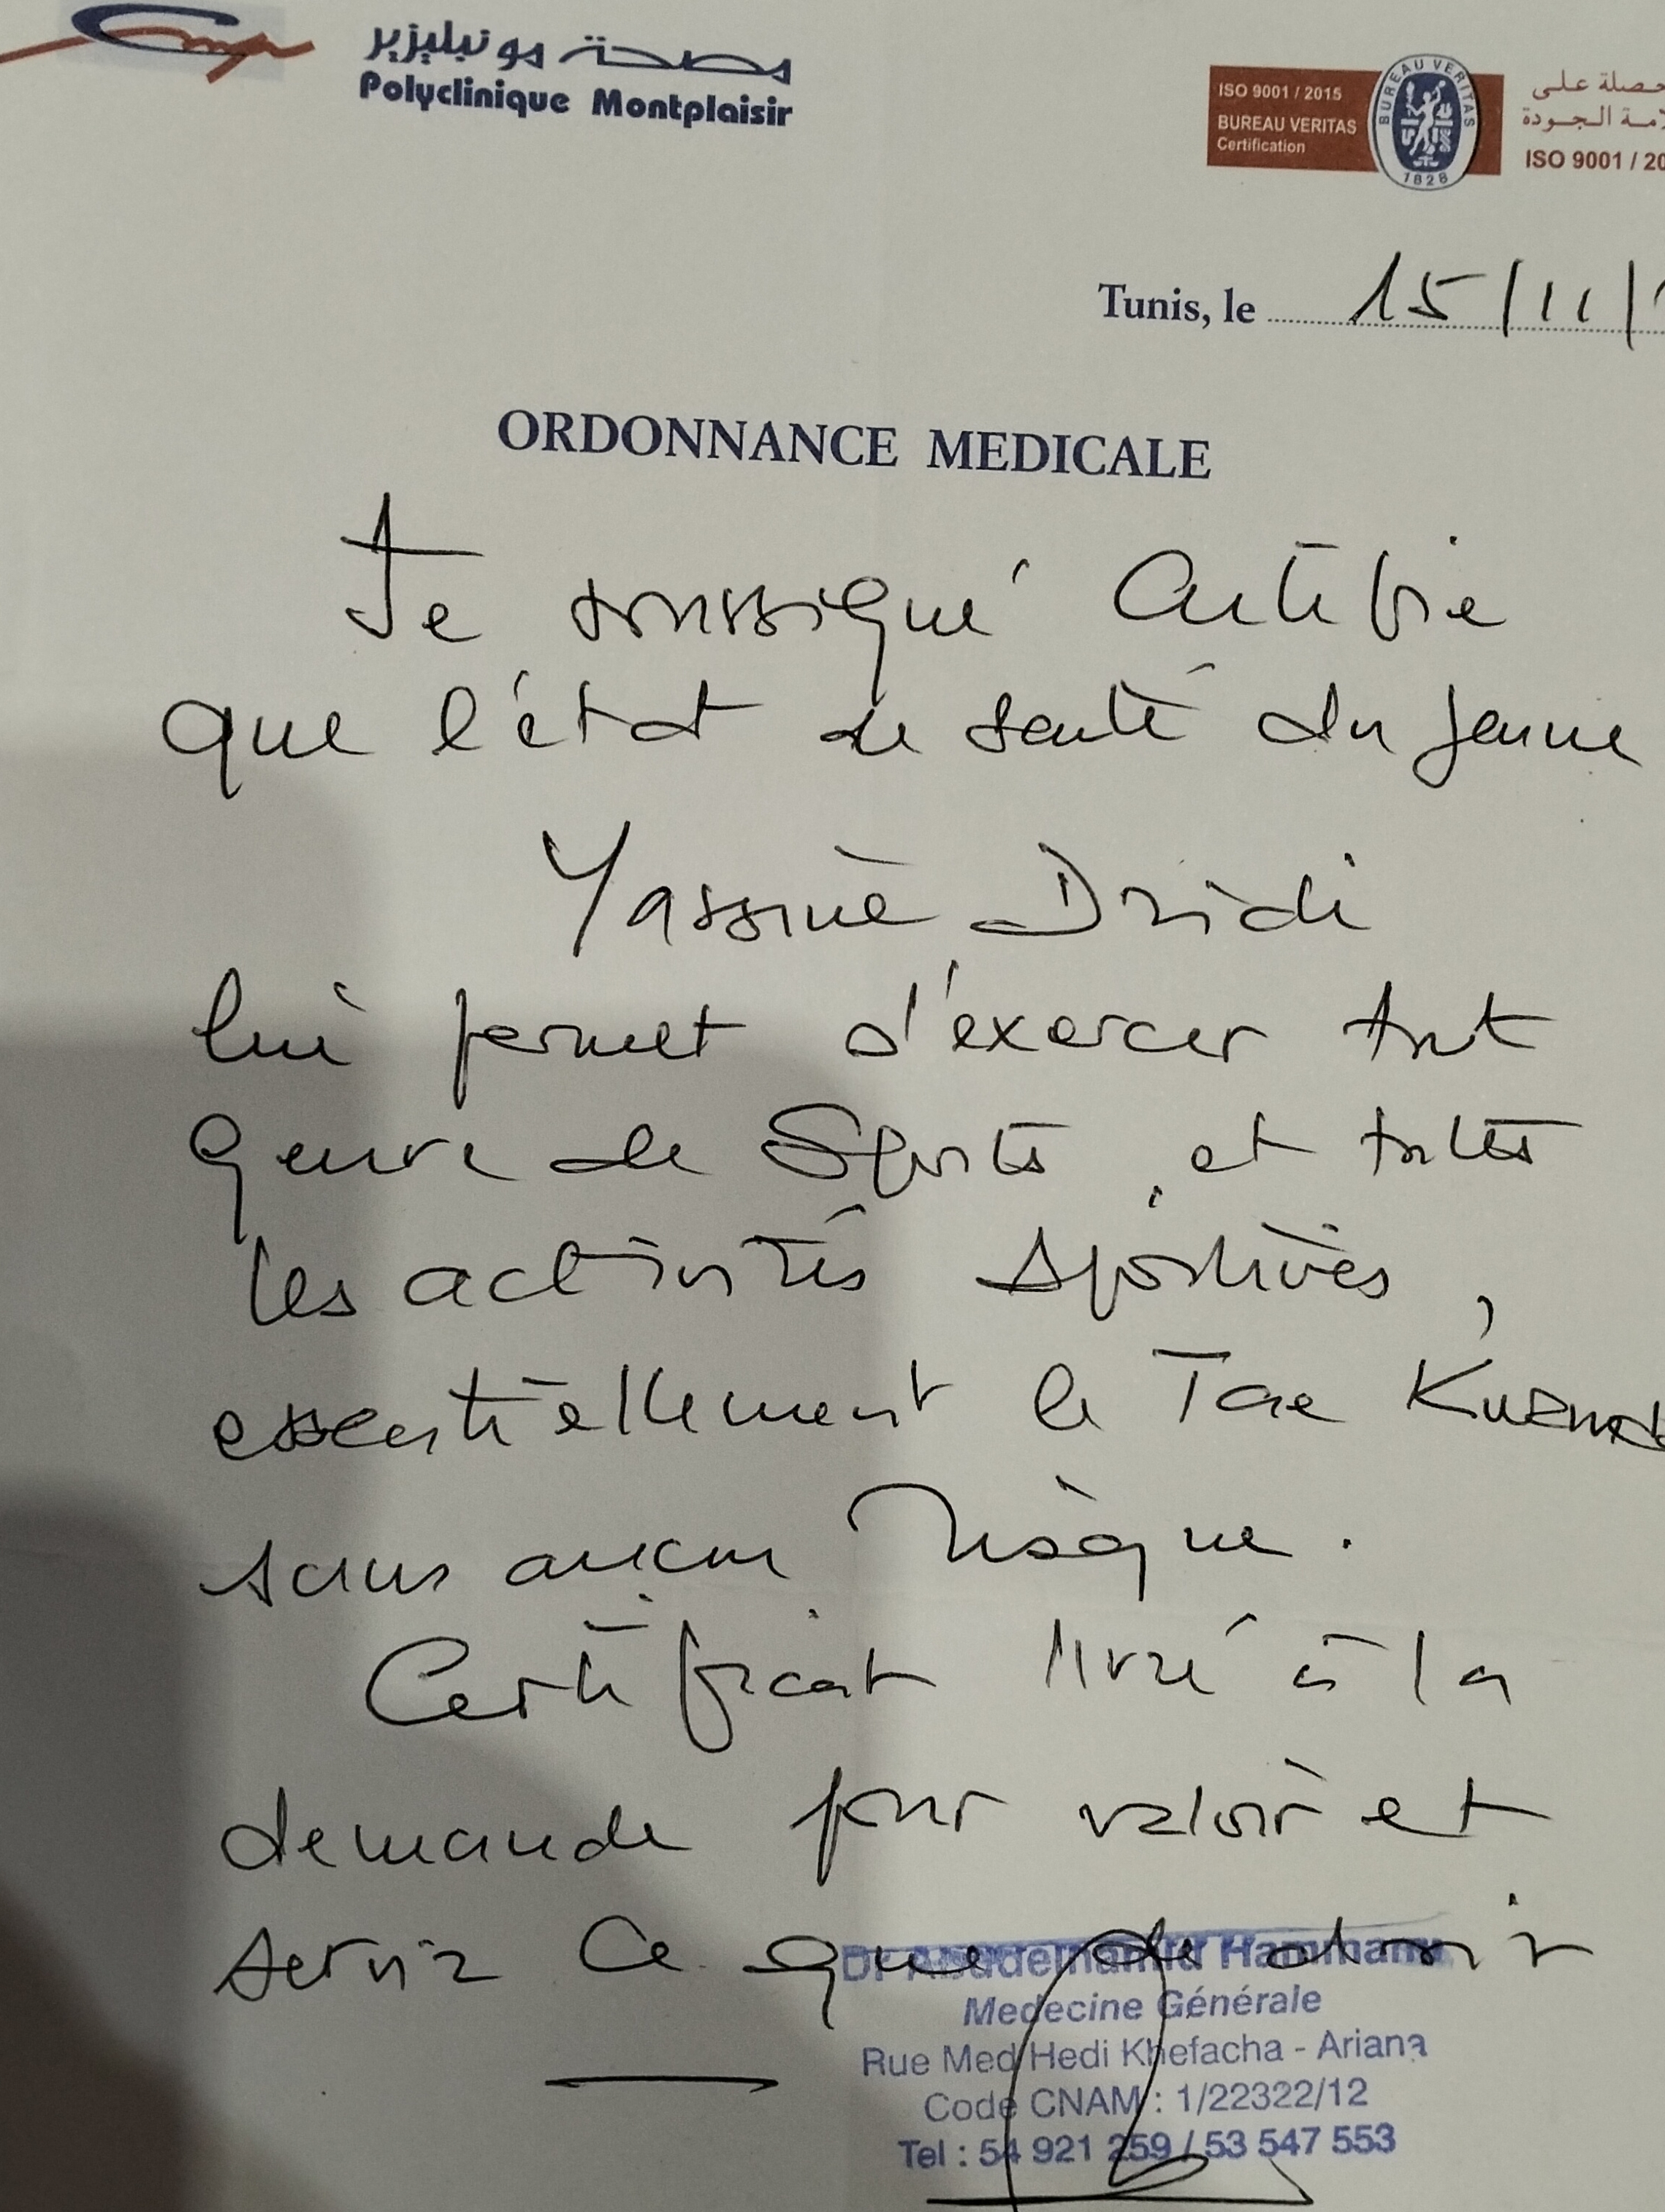 مصحة مونبليزير
Polyclinique Montplaisir
ISO 9001 / 2015
BUREAU VERITAS
Certification
BUREAU VERITAS
1828
حصلة على
امة الجودة
ISO 9001 / 20
Tunis, le 15/11/
ORDONNANCE MEDICALE
Je soussigné Certifie
que l'état de santé du jeune
Yassine Dridi
lui permet d'exercer tout
genre de Sports et toutes
les activités sportives,
essentiellement le Tae Kwendo
sans aucun risque.
Certificat livré à la
demande pour valoir et
servir ce que de droit
Dr Hammami
Medecine Générale
Rue Med Hedi Khefacha - Ariana
Code CNAM : 1/22322/12
Tel : 54 921 259 / 53 547 553